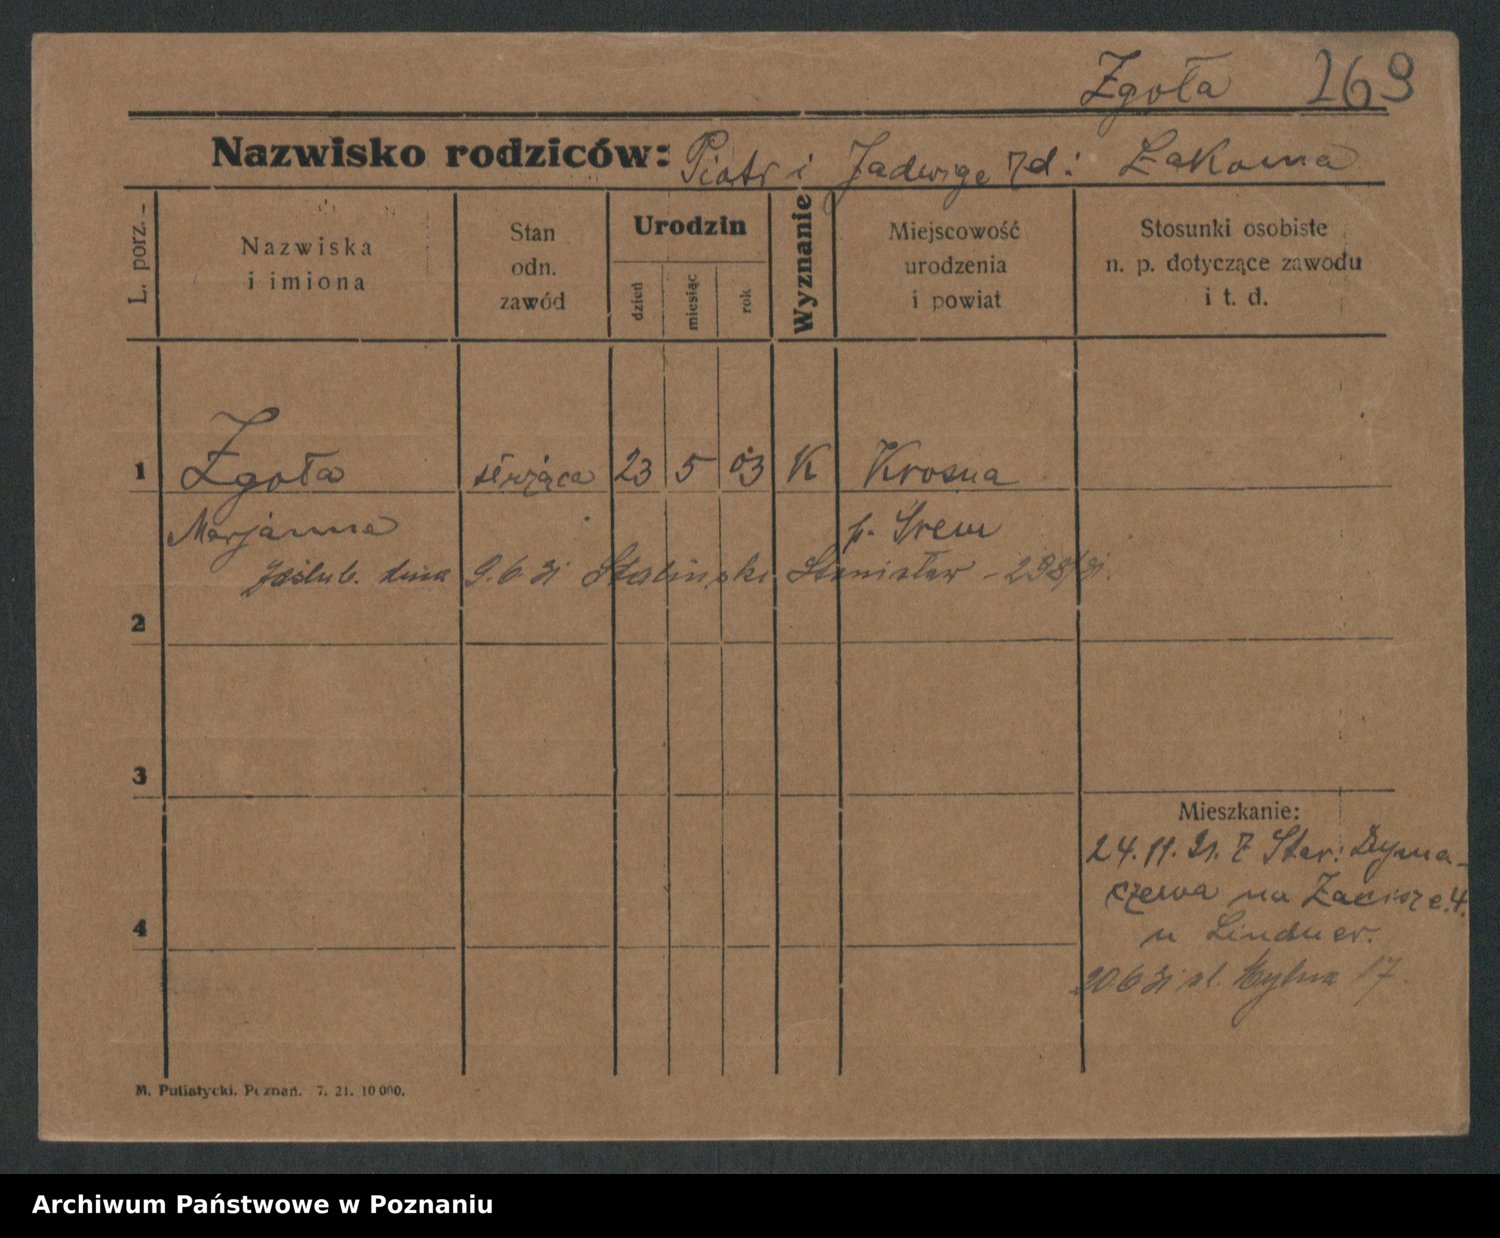 Zgoła 269
Nazwisko rodziców: Piotr i Jadwiga rd: Łakoma
L. porz.
Nazwiska
i imiona
Stan
odn.
zawód
Urodzin
dzień
miesiąc
rok
Wyznanie
Miejscowość
urodzenia
i powiat
Stosunki osobiste
n. p. dotyczące zawodu
i t. d.
1 Zgoła służąca 23 5 03 K Krosna
Marjanna p. Śrem
zaślub. dnia 9.6.31 Staliński Stanisław - 238/31.
2
3
4
Mieszkanie:
24.11.21. z Star:
na Zacisze 4.
u Lindner.
20 6 31 ul. 17.
M. Putiatycki. Poznań. 7. 21. 10 000.
Archiwum Państwowe w Poznaniu